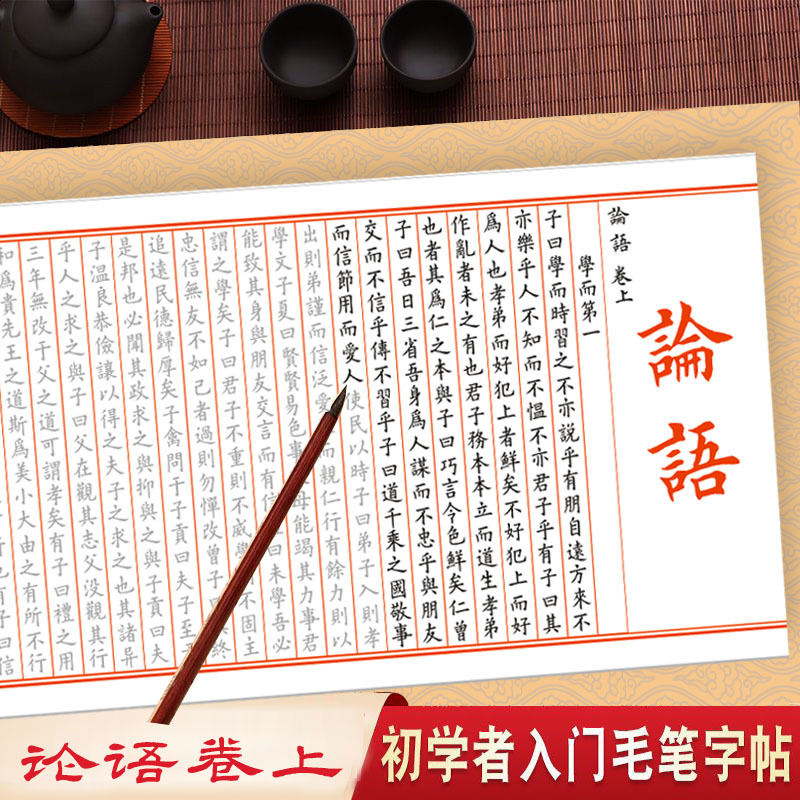 論語
論語 卷上
學而第一
子曰學而時習之不亦說乎有朋自遠方來不
亦樂乎人不知而不慍不亦君子乎有子曰其
爲人也孝弟而好犯上者鮮矣不好犯上而好
作亂者未之有也君子務本本立而道生孝弟
也者其爲仁之本與子曰巧言令色鮮矣仁曾
子曰吾日三省吾身爲人謀而不忠乎與朋友
交而不信乎傳不習乎子曰道千乘之國敬事
而信節用而愛人使民以時子曰弟子入則孝
出則弟謹而信泛愛而親仁行有餘力則以
學文子夏曰賢賢易色事母能竭其力事君
能致其身與朋友交言而有信曰未學吾必
謂之學矣子曰君子不重則不威學不固主
忠信無友不如己者過則勿憚改曾子終
追遠民德歸厚矣子禽問于子貢曰夫子至
是邦也必聞其政求之與抑與之與子貢曰夫
子溫良恭儉讓以得之夫子之求之也其諸异
乎人之求之與子曰父在觀其志父没觀其行
三年無改于父之道可謂孝矣有子曰禮之用
和爲貴先王之道斯爲美小大由之有所不行
论语卷上
初学者入门毛笔字帖